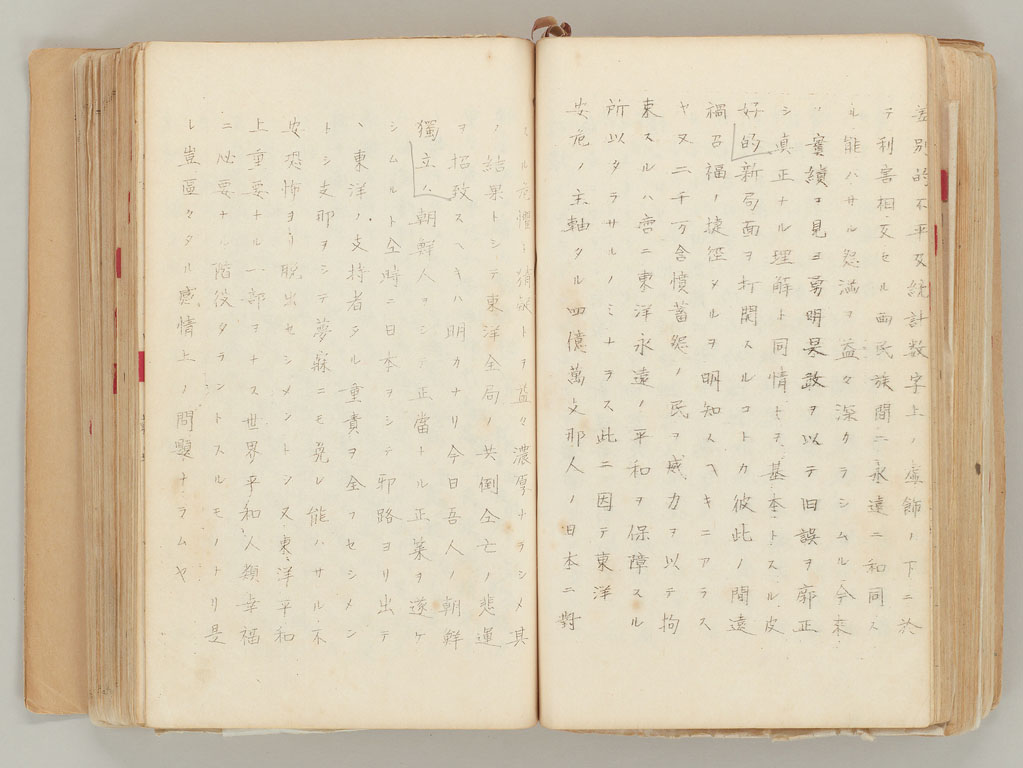 差別的不平及統計数字上ノ虚飾ノ下ニ於
テ利害相反セル両民族間ニ永遠ニ和同ス
ル能ハサル怨溝ヲ益々深カラシムル今来
ノ實績ヲ見ヨ勇明果敢ヲ以テ旧誤ヲ廓正
シ真正ナル理解ト同情トヲ基本トスル皮
好的新局面ヲ打開スルコトカ彼此ノ間遠
禍召福ノ捷径タルヲ明知スヘキニアラス
ヤ又二千万含憤蓄怨ノ民ヲ威力ヲ以テ拘
束スルハ啻ニ東洋永遠ノ平和ヲ保障スル
所以タラサルノミナラス此ニ因テ東洋
安危ノ主軸タル四億萬支那人ノ日本ニ對
スル危懼ト猜疑トヲ益々濃厚ナラシメ其
ノ結果トシテ東洋全局ノ共倒仝亡ノ悲運
ヲ招致スヘキハ明カナリ今日吾人ノ朝鮮
獨立ハ朝鮮人ヲシテ正當ナル正業ヲ遂ケ
シムルト仝時ニ日本ヲシテ邪路ヨリ出テ
丶東洋ノ支持者タル重責ヲ全フセシメン
トシ支那ヲシテ夢寐ニモ免レ能ハサル不
安恐怖ヨリ脱出セシメントシ又東洋平和
上重要ナル一部ヲナス世界平和人類幸福
ニ必要ナル階役タラントスルモノナリ是
レ豈區々タル感情上ノ問題ナラムヤ